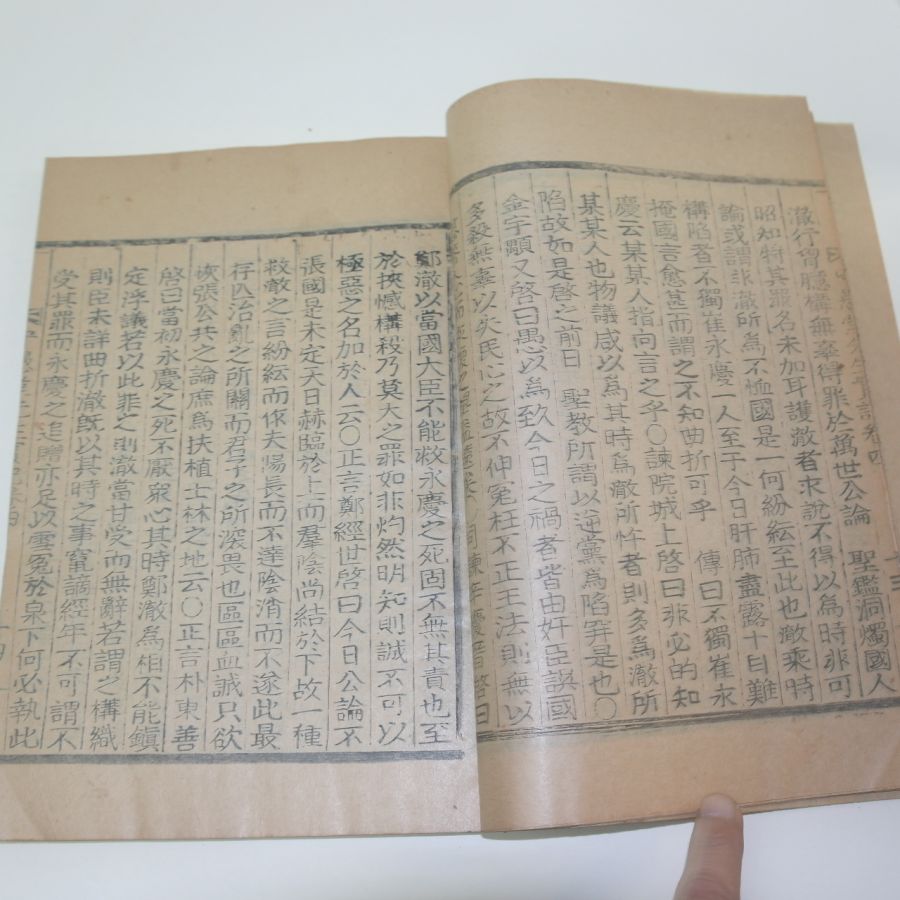 澈行胷臆構無辜得罪於萬世公論　聖鑑洞燭國人
昭知特其罪名未加耳護澈者求說不得以爲時非可
論或謂非澈所爲不恤國是一何紛紜至此也澈乘時
構陷者不獨崔永慶一人至于今日肝肺盡露十目難
掩國言愈甚而謂之不知曲折可乎　傳曰不獨崔永
慶云某某人指向言之乎○諫院城上啓曰非必的知
某某人也物議咸以爲其時爲澈所忤者則多爲澈所
陷故如是啓之前日　聖敎所謂以逆黨爲陷穽是也○
金宇顒又啓曰愚以爲致今日之禍者皆由奸臣誤國
多殺無辜以失民心之故不伸冤枉不正王法則無以
司諫辛慶晋啓曰
鄭澈以當國大臣不能救永慶之死固不無其責也至
於挾憾構殺乃莫大之罪如非灼然明知則誠不可以
極惡之名加於人云○正言鄭經世啓曰今日公論不
張國是未定天日赫臨於上而羣陰尙結於下故一種
救澈之言紛紜而作夫陽長而不達陰消而不遂此最
存亾治亂之所關而君子之所深畏也區區血誠只欲
恢張公共之論庶爲扶植士林之地云○正言朴東善
啓曰當初永慶之死不厭衆心其時鄭澈爲相不能鎭
定浮議若以此罪之則澈當甘受而無辭若謂之構織
則臣未詳曲折澈旣以其時之事竄謫經年不可謂不
受其罪而永慶之追贈亦足以雪冤於泉下何必執此